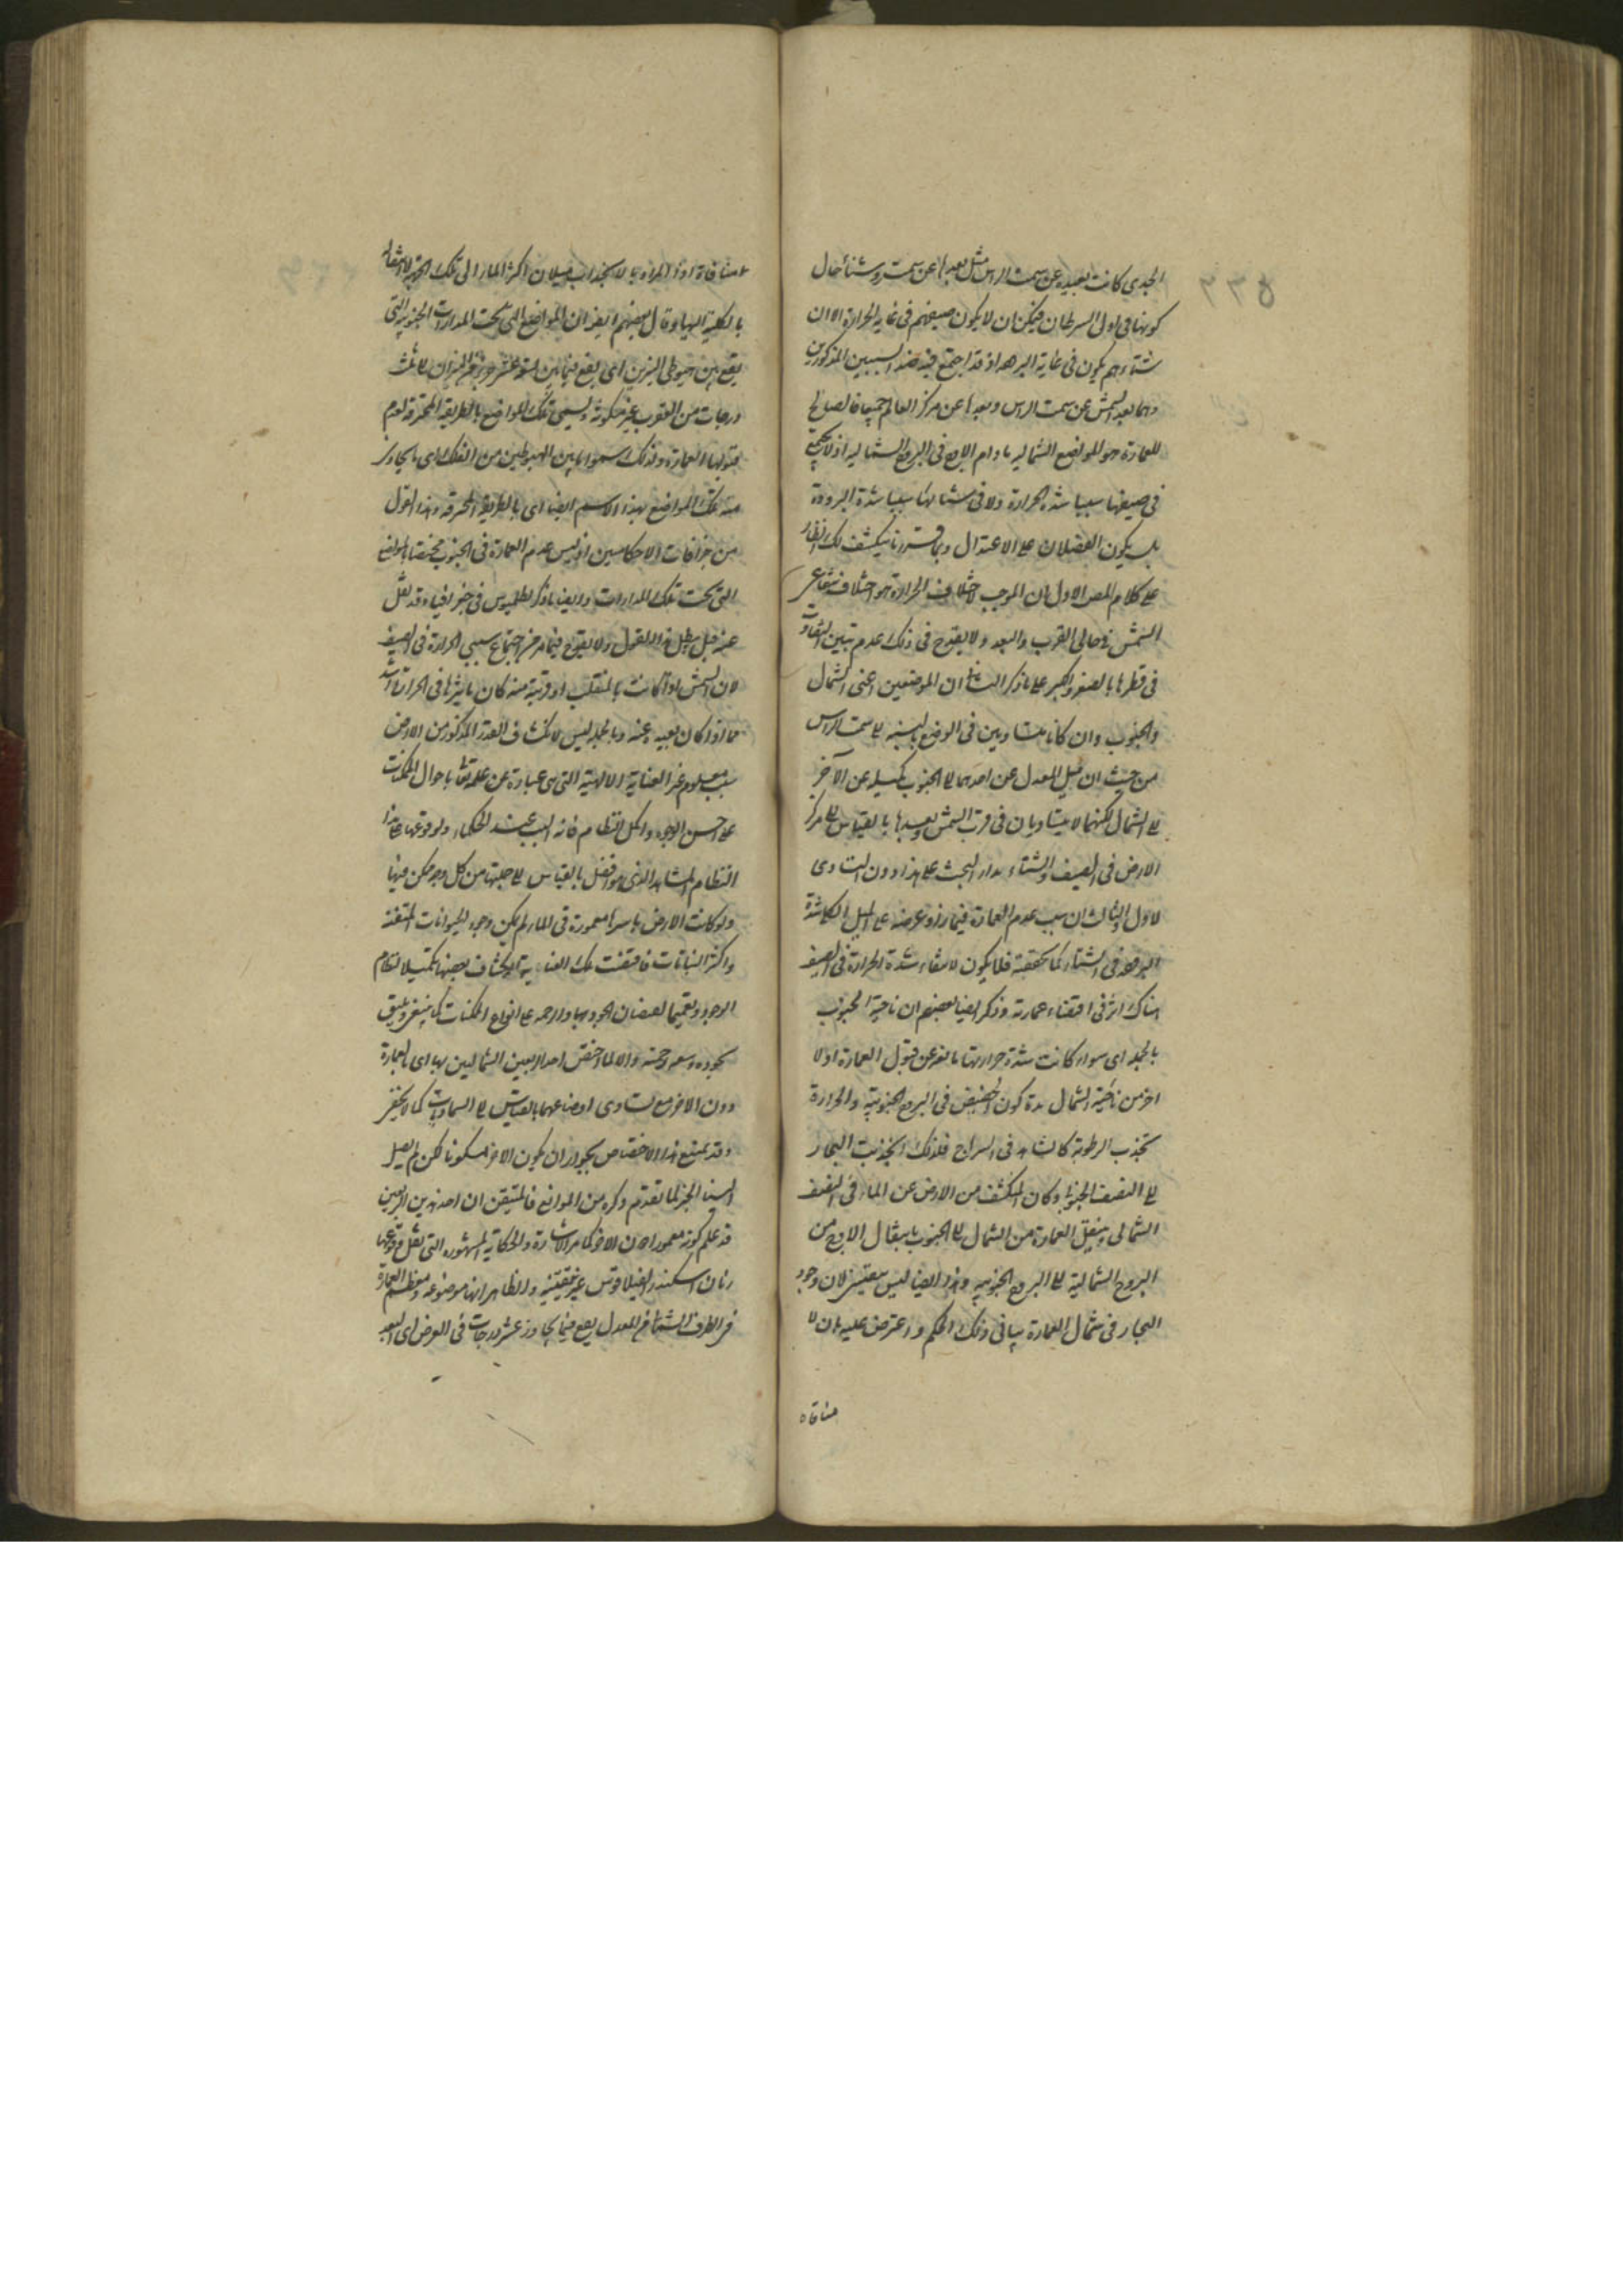 ٢٢٥
الجدي كانت بعيدة عن سمت الراس مثل بعدها عن سمت رؤسنا حال
كونها في اول السرطان فيمكن ان لا يكون صيفهم في غاية الحرارة الا ان
شتاءهم يكون في غاية البرد اذ قد اجتمع فيه ضد السببين المذكورين
وهما بعد الشمس عن سمت الراس وبعدها عن مركز العالم جميعا فالصالح
للعمارة هو المواضع الشمالية ما دام الاوج في البروج الشمالية اذ لا يجتمع
في صيفها سببا شدة الحرارة ولا في شتائها سببا شدة البرودة
بل يكون الفصلان على الاعتدال وبما قررنا ينكشف لك انظار
على كلام المص الاول ان الموجب لاختلاف الحرارة هو اختلاف شعاع
الشمس في حالي القرب والبعد ولا يقدح في ذلك عدم تبين التفاوت
في قطرها بالصغر والكبر على ما ذكر الثاني ان الموضعين اعني الشمال
والجنوب وان كانا متساويين في الوضع بالنسبة الى سمت الراس
من حيث ان ميل المعدل عن احدهما الى الجنوب كميله عن الآخر
الى الشمال لكنهما لا يتساويان في قرب الشمس وبعدها بالقياس الى مركز
الارض في الصيف والشتاء ومدار البحث على هذا دون التساوي
الاول والثالث ان سبب عدم العمارة فيما زاد عرضه على الميل الكلي شدة
البرد في الشتاء كما تحققته فلا يكون لانتفاء شدة الحرارة في الصيف
هناك اثر في اقتضاء عمارته وذكر ايضا بعضهم ان ناحية الجنوب
بالجملة اي سواء كانت شدة حرارتها مانعة عن قبول العمارة او لا
احر من ناحية الشمال مدة كون الحضيض في البروج الجنوبية والحرارة
تجذب الرطوبة كما نشاهد في السراج فلذلك انجذبت البحار
الى النصف الجنوبي وكان المنكشف من الارض عن الماء في النصف
الشمالي وينتقل العمارة من الشمال الى الجنوب بانتقال الاوج من
البروج الشمالية الى البروج الجنوبية وهذا ايضا ليس بمتيقن لان وجود
البحار في شمال العمارة ينافي ذلك الحكم واعترض عليه بان لا
منافاة
لا منافاة اذ المراد بالانجذاب ميلان اكثر الماء الى تلك الجهة لا انتقاله
بالكلية اليها وقال بعضهم ايضا ان المواضع التي تحت المدارات الجنوبية التي
يقع بين هبوطي النيرين اي يقع فيما بين تسع عشرة درجة من الميزان الى ثلث
درجات من العقرب غير مسكونة ويسمى تلك المواضع بالطريقة المحترقة لعدم
قبولها العمارة ولذلك سموا ما بين الهبوطين من الفلك اي ما يجاور
منه تلك المواضع بهذا الاسم ايضا اي بالطريقة المحترقة وهذا القول
من خرافات الاحكاميين اذ ليس عدم العمارة في الجنوب مختصا بالمواضع
التي تحت تلك المدارات وايضا ما ذكر بطلميوس في جغرافيا وقد نقل
عنه قبل يبطل هذا القول ولا يقدح فيما مر من اجتماع سببي الحرارة في الصيف
لان الشمس اذا كانت بالمنقلب او قريبة منه كان تاثيرها في الحرارة اشد
مما اذا كان بعيدة عنه وبالجملة ليس لانكشاف القدر المذكور من الارض
سبب معلوم غير العناية الالهية التي هي عبارة عن علمه تعالى باحوال الممكنات
على احسن الوجوه واكمل النظام فانه السبب عند الحكماء ولوقوعها على هذا
النظام المشاهد الذي هو افضل بالقياس الى جملتها من كل وجه ممكن فيها
ولو كانت الارض باسرها مغمورة في الماء لم يكن وجود الحيوانات المتنفسة
واكثر النباتات فاقتضت تلك العناية انكشاف بعضها تكميلا لنظام
الوجود وتعميما لفيضان الجود بها والرحمة على انواع الممكنات كما ينبغي ويليق
بجوده وسعة رحمته والا لما اختص احد الربعين الشماليين بها اي بالعمارة
دون الآخر مع تساوي اوضاعهما بالقياس الى السماويات كما لا يخفى
وقد يمنع هذا الاختصاص بجواز ان يكون الآخر مسكونا لكن لم يصل
الينا الخبر لما تقدم ذكره من الموانع فالمتيقن ان احد هذين الربعين
قد علم كونه معمورا دون الآخر كما مر الاشارة والحكاية المشهورة التي نقل وقوعها
زمان اسكندر الفيلاقوس غير متيقنة والظاهر انها موضوعة ومعظم العمارة
في الطرف الشمالي من المعدل يقع فيما يجاوز عشر درجات في العرض اي البعد